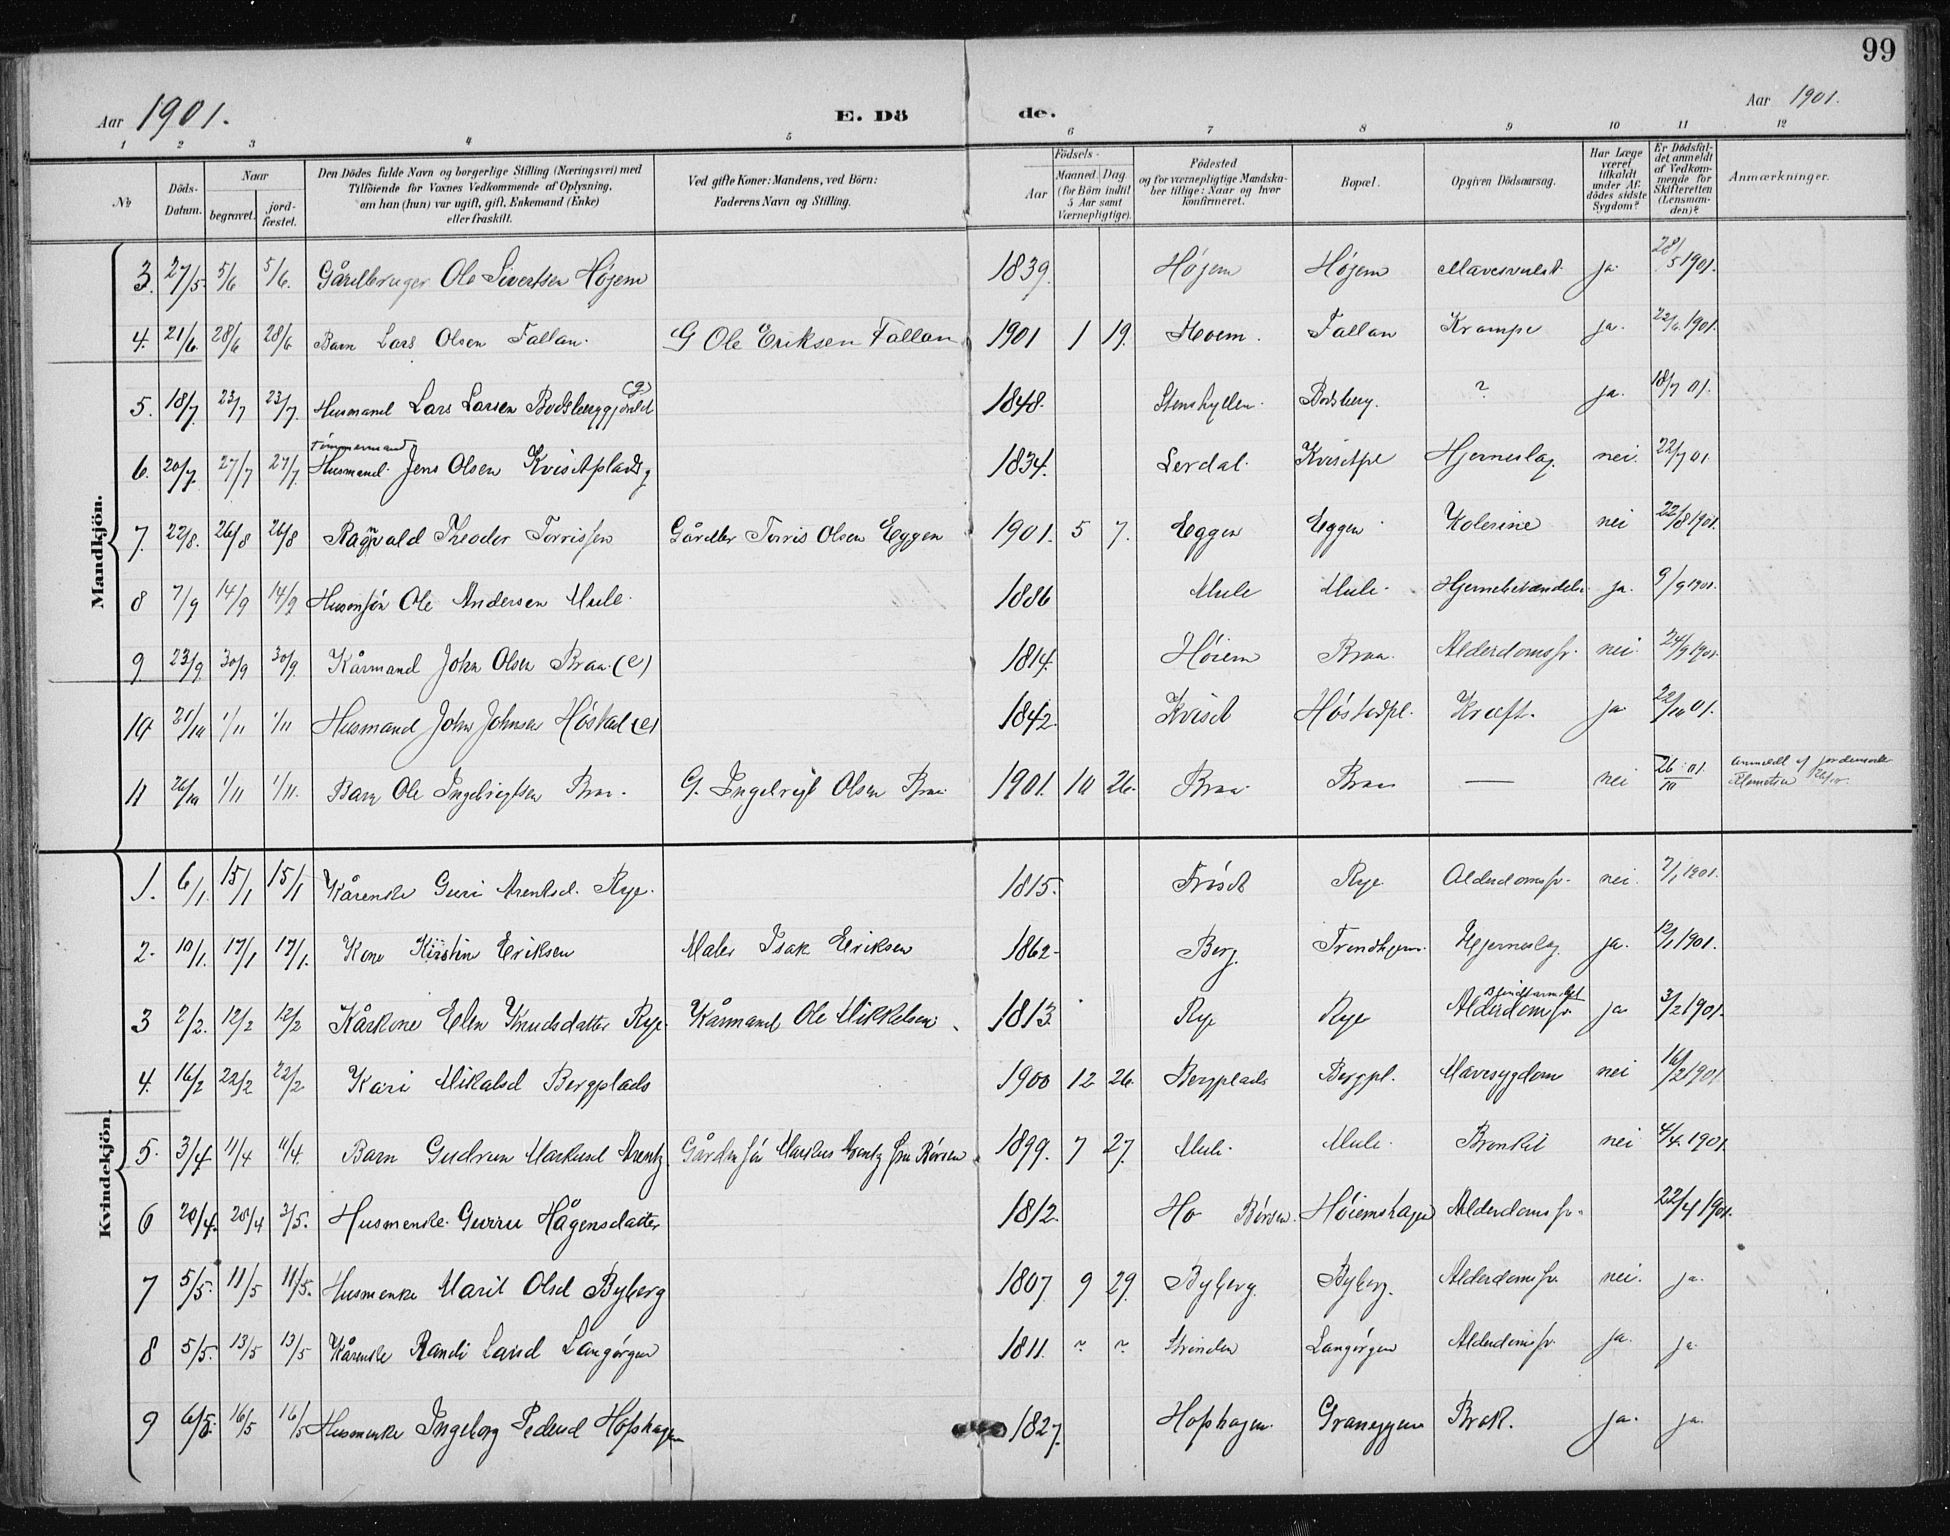 99
Aar 1901. E. Dö de. Aar 1901.
1 2 3 4 5 6 7 8 9 10 11 12
№
Döds-Datum.
Naar
begravet. jord-fæstet.
Den Dödes fulde Navn og borgerlige Stilling (Næringsvei) med
Tilföiende for Voxnes Vedkommende af Oplysning,
om han (hun) var ugift, gift, Enkemand (Enke)
eller fraskilt.
Ved gifte Koner: Mandens, ved Börn:
Faderens Navn og Stilling.
Födsels-
Aar Maaned. Dag
(for Börn indtil
5 Aar samt
Værnepligtige).
Födested
og for værnepligtige Mandska-
ber tillige: Naar og hvor
konfirmeret.
Bopæl.
Opgiven Dödsaarsag.
Har Læge
været
tilkaldt
under Af-
dödes sidste
Sygdom?
Er Dödsfal-
det anmeldt
af Vedkom-
mende for
Skifteretten
(Lensman-
den)?
Anmærkninger.
Mandkjön.
3. 27/5. 5/6 5/6. Gårdbruger Ole Sivertsen Höjem 1839. Höjem Höjem Mavesvulst ja 28/5 1901.
4. 21/6. 28/6 28/6 Barn Lars Olsen Fallan. G Ole Eriksen Fallan 1901 1 19. Hoem. Fallan Krampe ja. 22/6 1901.
5. 18/7. 23/7 23/7. Husmand Lars Larsen Bodsberggjerdet (g) 1848. Stenshyllen. Bodsberg. ? ja. 18/7 01.
Tömmermand
6. 20/7. 27/7 27/7. Husmand. Jens Olsen Kvisetplads g 1834. Lerdal. Kvisetpl Hjerneslag nei. 22/7 01.
7. 22/8. 26/8 26/8 Ragnvald Theodor Torrissen Gårdbr Torris Olsen Eggen 1901. 5 7. Eggen Eggen Kolerine nei 22/8 1901.
8 7/9 14/9 14/9 Husmsön Ole Andersen Mule. 1886 Mule Mule. Hjernebetændelse. ja. 9/9 1901.
9. 23/9. 30/9 30/9. Kårmand John Olsen Braa (e) 1814. Höiem Braa. Alderdomssv. nei. 24/9 1901.
10 21/10 1/11 1/11 Husmand John Johnsen Höstad (e) 1842. Kviset Höstadpl. Kræft. ja 22/10 01.
11 26/10 1/11 1/11. Barn Ole Ingebrigtsen Braa. G. Ingebrigt Olsen Braa 1901. 10 26. Braa Braa — nei 26/10 01. anmeldt af jordemoder
Kvindekjön.
1. 6/1. 15/1 15/1 Kårenke Guri Arentsd. Rye. 1815. Tröset Rye Alderdomssv. nei. 7/1 1901.
2. 10/1. 17/1 17/1. Kone Kirstine Eriksen Maler Isak Eriksen 1862. Berg. Trondhjem. Hjerneslag ja. 12/1 1901.
3 2/2. 12/2 12/2 Kårkone Elen Knudsdatter Rye. Kårmand Ole Mikkelsen 1813. Rye Rye Alderdomssv. ja 3/2 1901.
4. 16/2 22/2 22/2 Kari Mikalsd Bergplads 1900 12 26. Bergplads Bergpl. Mavesygdom nei 16/2 1901
5. 3/4 11/4 11/4. Barn Gudrun Markusd Arentz. Gårdmsön Markus Arentz fra Börsen 1899. 7 27. Mule. Mule. Bronkit nei 4/4. 1901.
6 20/4. 28/4 3/5. Husmenke. Gurru Hågensdatter 1812. Ho Börsen. Höiemshagen Alderdomssv. 22/4 1901.
7 5/5. 11/5 11/5. Husmenke Marit Olsd Byberg 1807 9 29. Byberg. Byberg. Alderdomssv. nei. ja.
8 5/5. 13/5 13/5 Kårenke Randi Larsd Langörgen 1811. ? ? Strinden Langörgen Alderdomssv ja. ja.
9 6/5. 16/5 16/5 Husmenke Ingeborg Pedersd Hofshagen 1827. Hofshagen. Graneggen Brok. ja. ja.